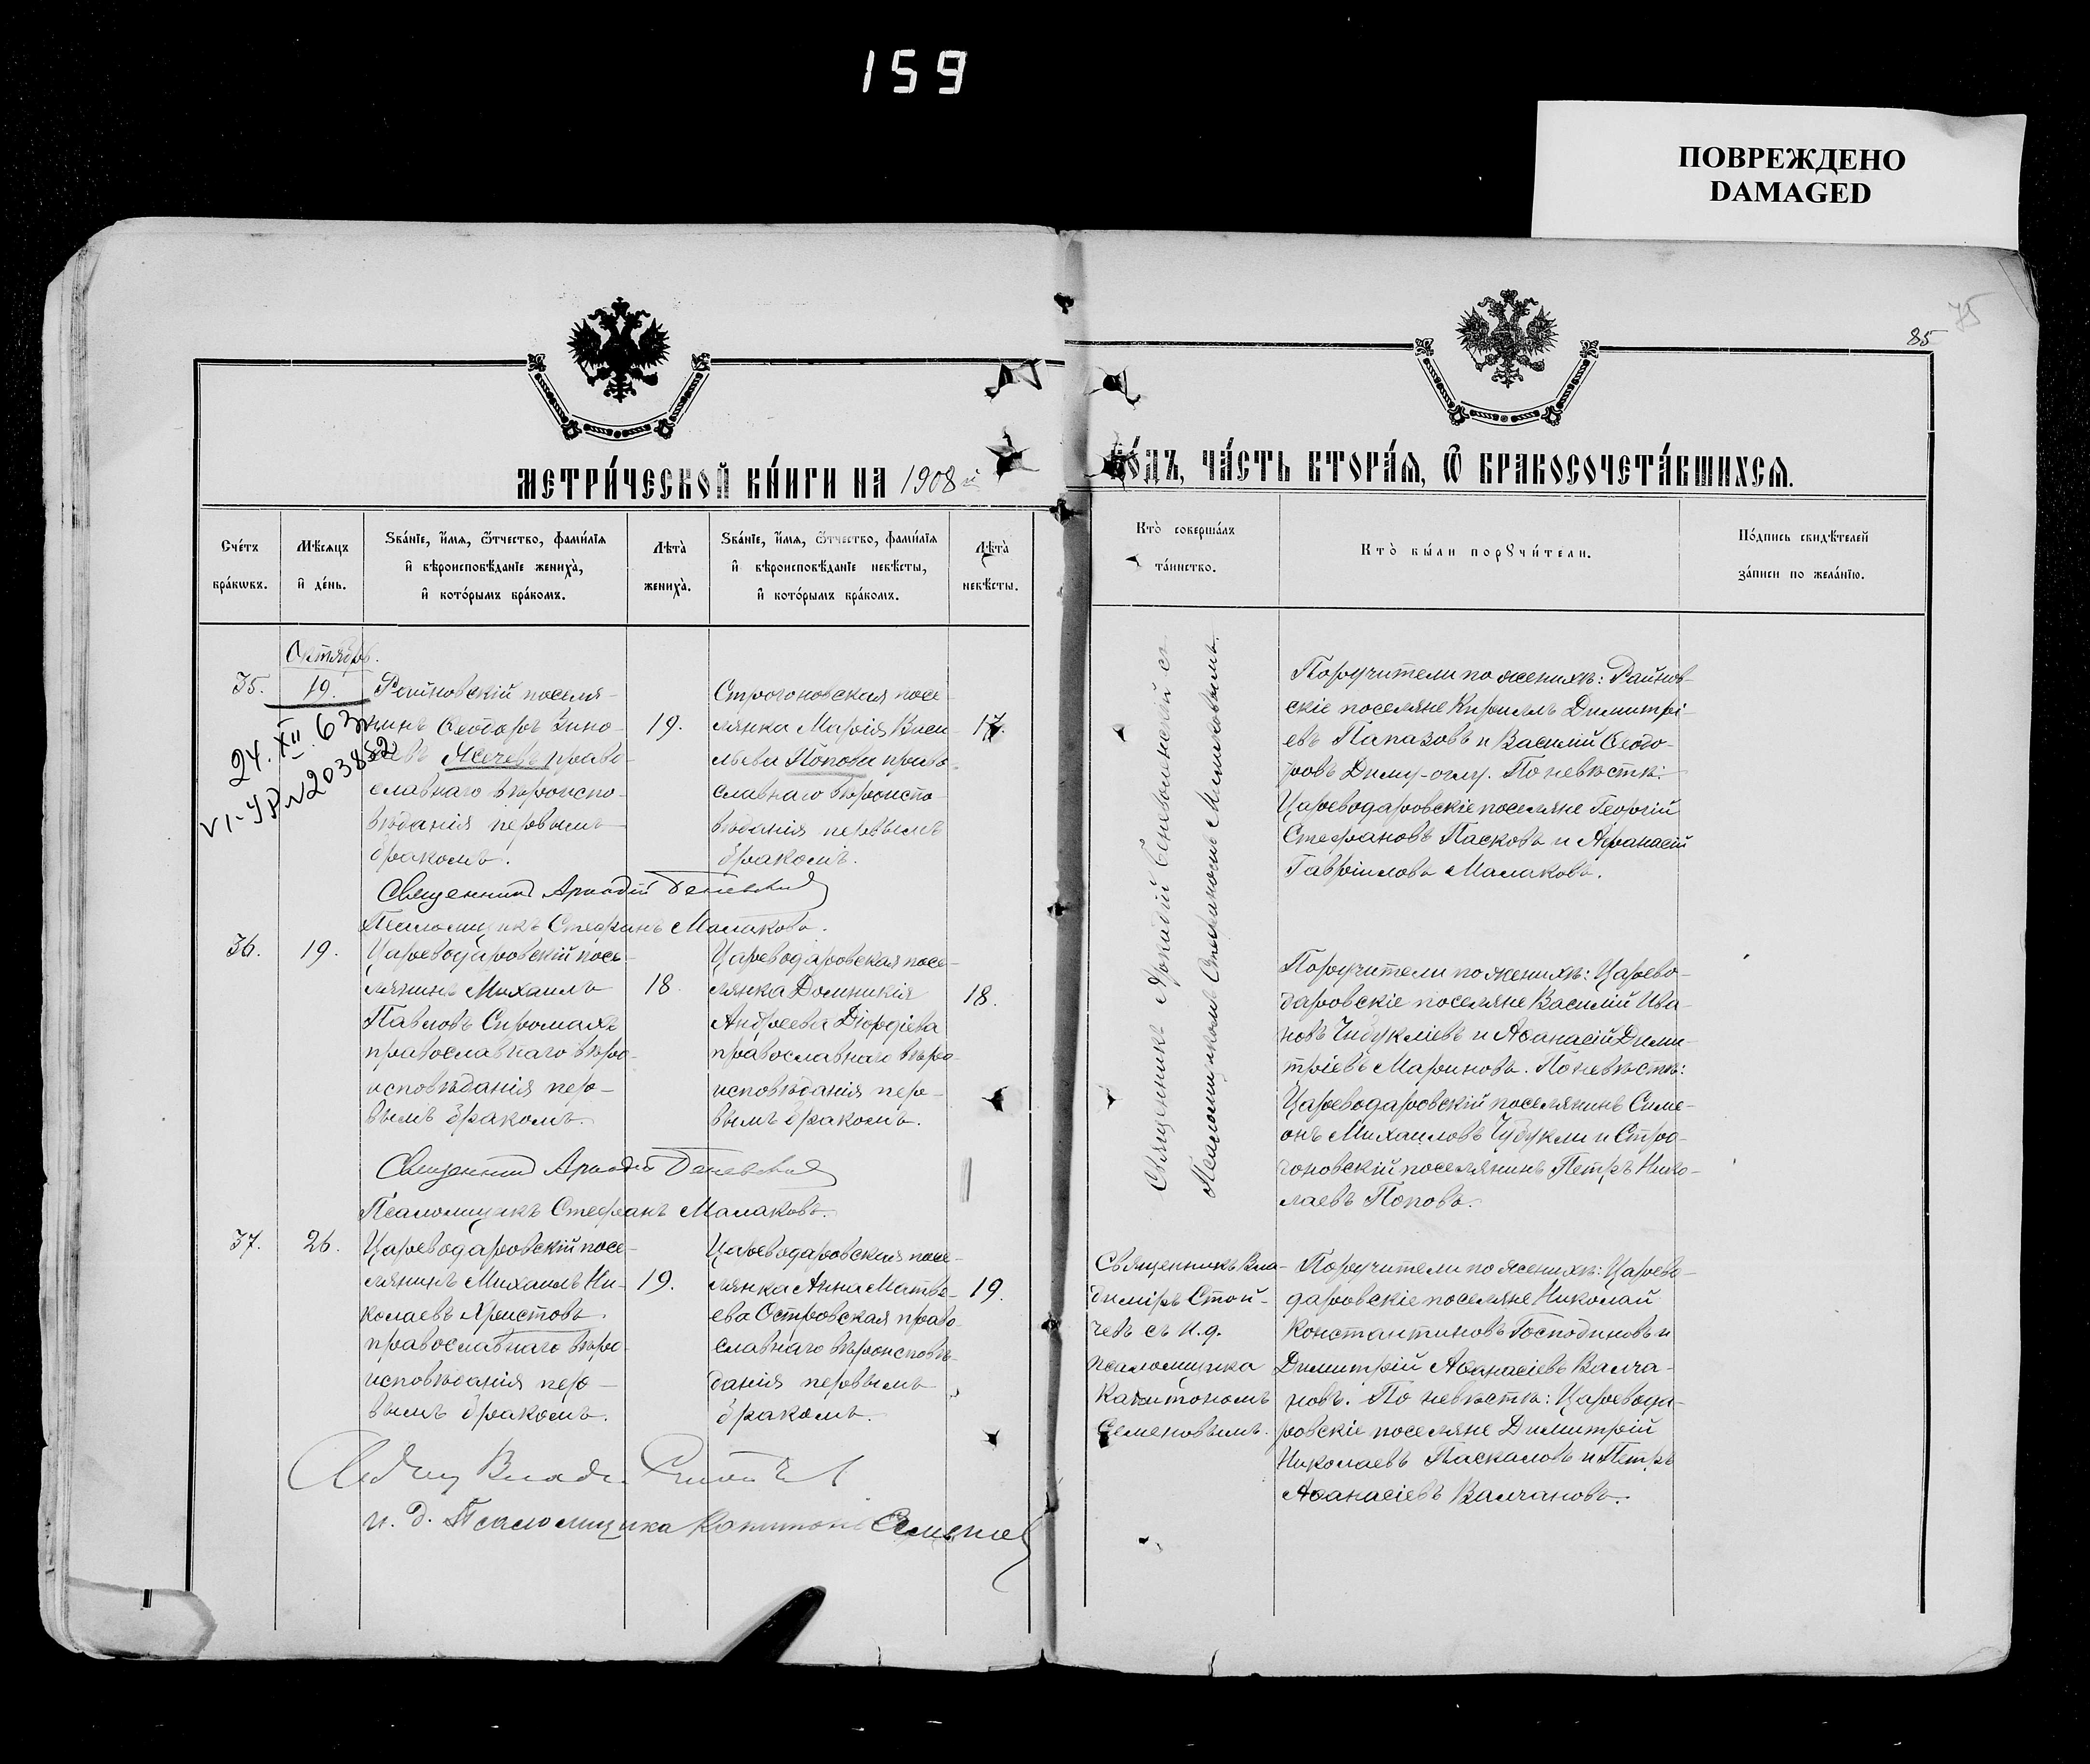 159
ПОВРЕЖДЕНО
DAMAGED
85
75
МЕТРИ́ЧЕСКОЙ КНИ́ГИ НА 1908 й
ГО́ДЪ, ЧА́СТЬ ВТОРА́Я, Ѿ БРАКОСОЧЕТА́ВШИХСЯ.
Сче́тъ
бра́кωвъ.
Мѣ́сѧцъ
и҆ де́нь.
Ѕва́нїе, и҆́мѧ, ѻ҆́тчество, фами́лїѧ
и҆ вѣроисповѣ́данїе жениха̀,
и҆ кото́рымъ бра́комъ.
Лѣта̀
жениха̀.
Ѕва́нїе, и҆́мѧ, ѻ҆́тчество, фами́лїѧ
и҆ вѣроисповѣ́данїе невѣ́сты,
и҆ кото́рымъ бра́комъ.
Лѣта̀
невѣ́сты.
Кто̀ соверша́лъ
та́инство.
Кто̀ бы́ли порꙋчи́тели.
По́дпись свидѣ́телей
за́писи по жела́нїю.
Октябрь.
35.
19.
24. XII. 63
VI-УР N203852
Райновскій поселя-
нинъ Ѳеодоръ Зино-
вьевъ Ясечевъ право-
славнаго вѣроиспо-
вѣданія первымъ
бракомъ.
19.
Строгоновская посе-
лянка Марія Васи-
льева Попова право-
славнаго вѣроиспо-
вѣданія первымъ
бракомъ.
17.
Священникъ Аркадій Беневольскій съ
Псаломщикомъ Стефаномъ Малаковымъ.
Поручители по женихѣ: Райнов-
скіе поселяне Кириллъ Димитрі-
евъ Папазовъ и Василій Ѳеодо-
ровъ Диму-оглу. По невѣстѣ:
Цареводаровскіе поселяне Георгій
Стефановъ Пасковъ и Афанасій
Гавріиловъ Малаковъ.
Священникъ Аркадій
Псаломщикъ Стефанъ Малаковъ.
36.
19.
Цареводаровскій посе-
лянинъ Михаилъ
Павловъ Сиромахъ
православнаго вѣро-
исповѣданія пер-
вымъ бракомъ.
18.
Цареводаровская посе-
лянка Домникія
Андреева Діордіева
православнаго вѣро-
исповѣданія пер-
вымъ бракомъ.
18.
Поручители по женихѣ: Царево-
даровскіе поселяне Василій Ива-
новъ Чибукліевъ и Аѳанасій Дими-
тріевъ Мариновъ. По невѣстѣ:
Цареводаровскій поселянинъ Симе-
онъ Михаиловъ Чубукли и Стро-
гоновскій поселянинъ Петръ Нико-
лаевъ Поповъ.
Священникъ Аркадій
Псаломщикъ Стефанъ Малаковъ.
37.
26.
Цареводаровскій посе-
лянинъ Михаилъ Ни-
колаевъ Христовъ
православнаго вѣро-
исповѣданія пер-
вымъ бракомъ.
19.
Цареводаровская посе-
лянка Анна Матве-
ева Островская право-
славнаго вѣроисповѣ-
данія первымъ
бракомъ.
19.
Священникъ Вла-
диміръ Стой-
чевъ съ и.д.
псаломщика
Капитономъ
Семеновымъ.
Поручители по женихѣ: Царево-
даровскіе поселяне Николай
Константиновъ Господиновъ и
Димитрій Аѳанасіевъ Валча-
новъ. По невѣстѣ: Царевода-
ровскіе поселяне Димитрій
Николаевъ Паскаловъ и Петръ
Аѳанасіевъ Валчановъ.
и. д. Псаломщика Капитонъ Семеновъ